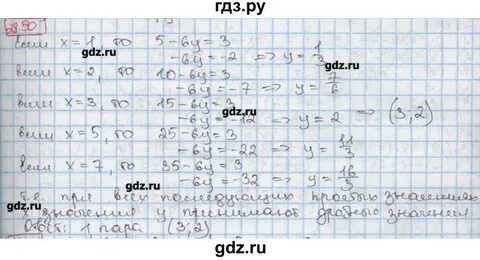 гдз.ру
28.50
если x=1, то 5-6y=3
-6y=-2 => y=1/3
если x=2, то 10-6y=3
-6y=-7 => y=7/6
если x=3, то 15-6y=3
-6y=-12 => y=2 => (3;2)
если x=5, то 25-6y=3
-6y=-22 => y=11/3
если x=7, то 35-6y=3
-6y=-32 => y=16/3
т.е. при всех последующих простых значениях
x значения y принимают дробные значения
Ответ: 1 пара (3;2)
gdz.ru
gdz.ru
gdz.ru
gdz.ru
gdz.ru
gdz.ru
gdz.ru
gdz.ru